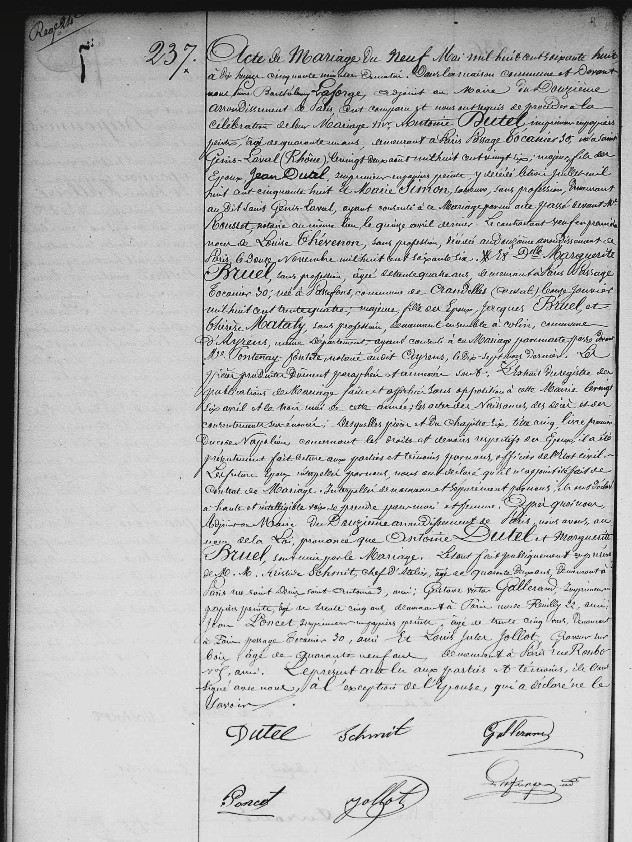 237.
Acte de Mariage du Neuf Mai mil huit cent soixante huit
à dix heures cinquante minutes du matin. Dans la maison commune et Devant
nous Barthélemy Laforge, adjoint au Maire du Douzième
arrondissement de Paris, ont comparu et nous ont requis de procéder à la
célébration de leur Mariage Mr. Antoine Dutel, imprimeur en papiers
peints, âgé de quarante un ans, demeurant à Paris Passage Tocanier 30, né à Saint
Genis-Laval (Rhône) le vingt deux août mil huit cent vingt six; majeur, fils des
Epoux Jean Dutel, imprimeur en papiers peints, y décédé Juillet mil
huit cent cinquante huit et Marie Simon, sa veuve, sans profession, demeurant
au dit Saint Genis-Laval, ayant consenti à ce Mariage par un acte passé devant Me
Rousset, notaire au même lieu, le quinze avril dernier. Le contractant veuf en premières
noces de Louise Thévenon, sans profession, décédée au Douzième arrondissement de
Paris, le Douze Novembre mil huit cent soixante six. Et Dlle Marguerite
Bruel, sans profession, âgée de trente quatre ans, demeurant à Paris Passage
Tocanier 30; née à commune de Crandelles (Cantal) le onze Janvier
mil huit cent trente quatre, majeure, fille des Epoux Jacques Bruel et
Thérèse Mataly, sans profession, demeurant ensemble à commune
d'Ayrens, même Département, ayant consenti à ce Mariage par un acte passé devant
Me. Fontenay notaire audit Ayrens, le Dix Sept Mars Dernier. Les
pièces produites Dûment paraphées et annexées sont: L'extrait du registre des
publications de Mariage faites et affichées sans opposition à cette Mairie les vingt
six avril et le trois mai de cette année; les actes des Naissances, des décès et des
consentements sus énoncés; desquelles pièces et Du Chapitre six, titre cinq, livre premier
Du code Napoléon concernant les droits et devoirs respectifs des Epoux, il a été
présentement fait lecture aux parties et témoins par nous, officier de l'état civil.
Les futurs Epoux interpellés par nous, nous ont déclaré qu'il n'a point été fait de
Contrat de Mariage. Interpellés de nouveau et séparément par nous, ils ont déclaré
à haute et intelligible voix se prendre pour mari et femme. Après quoi nous
Adjoint au Maire du Douzième arrondissement de Paris, nous avons, au
nom de la Loi, prononcé que Antoine Dutel et Marguerite
Bruel, sont unis par le Mariage. Le tout fait publiquement en présence
de M. M. Schmit, Chef d'Atelier, âgé de quarante ans, Demeurant à
Paris rue Saint Denis Saint Antoine 3, ami; Gustave Victor Gallerand, Imprimeur en
papiers peints, âgé de trente cinq ans, demeurant à Paris rue de Reuilly 22, ami;
Jean Poncet Imprimeur en papiers peints, âgé de trente cinq ans, Demeurant
à Paris passage Tocanier 30, ami Et Louis Jules Jolliot, Graveur sur
bois, âgé de quarante neuf ans, demeurant à Paris rue
ami. Le présent acte lu aux parties et témoins, ils l'ont
signé avec nous, à l'exception de l'Epouse, qui a déclaré ne le
savoir.
Dutel Schmit Gallerand
Poncet Jolliot